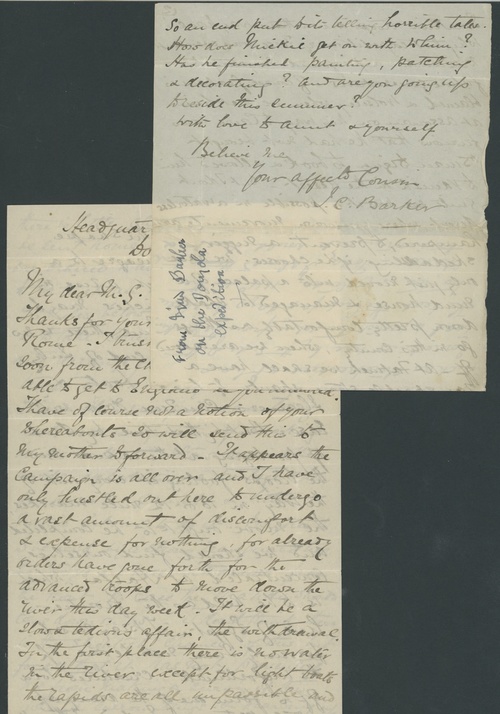 Headquar
Do
My dear M. G.
Thanks for your
Rome
soon from the
able to get to
I have of course not a notion of your
whereabouts so will send this to
my mother to forward - It appears the
Campaign is all over and I have
only hustled out here to undergo
a vast amount of discomfort
& expense for nothing, for already
orders have gone forth for the
advanced troops to move down the
river this day week. It will be a
slow & tedious affair, the withdrawal.
In the first place there is no water
in the river except for light boats
the rapids are all impassible and
So an end put to its killing horrible tale.
How does Mickie get on with
Has he finished painting, patching
& decorating? and are you going up
to reside this summer?
With love to aunt & yourself
Believe me
Your affecte Cousin
J. C. Barker
From Barker
on the Dongola
expedition